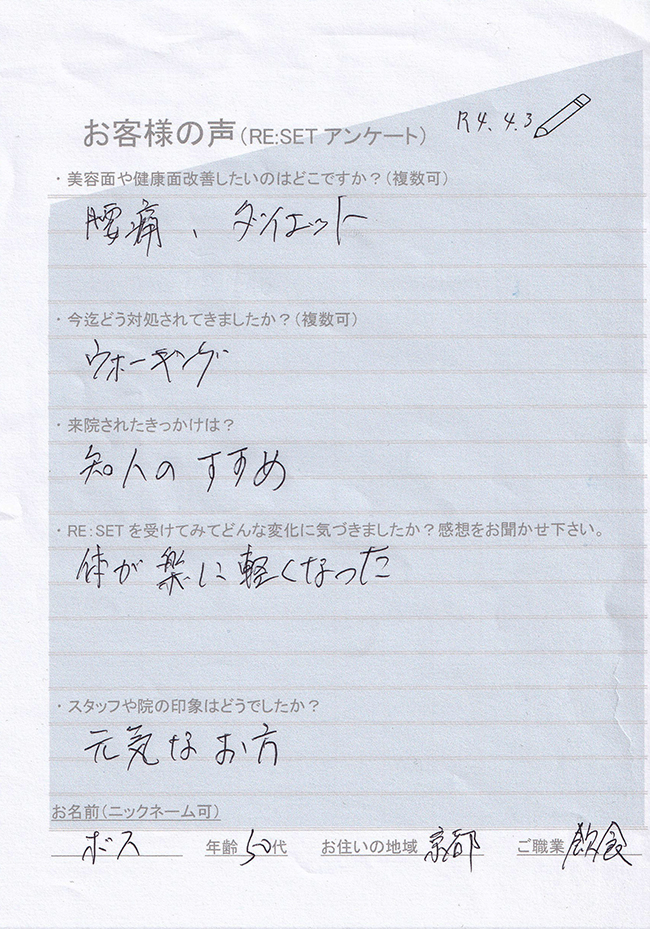 お客様の声(RE:SET アンケート) R4.4.3
・美容面や健康面改善したいのはどこですか?(複数可)
腰痛、ダイエット
・今迄どう対処されてきましたか?(複数可)
ウォーキング
・来院されたきっかけは?
知人のすすめ
・RE:SETを受けてみてどんな変化に気づきましたか?感想をお聞かせ下さい。
体が楽に軽くなった
・スタッフや院の印象はどうでしたか?
元気なお方
お名前(ニックネーム可)
ボス 年齢 50代 お住いの地域 京都 ご職業 飲食